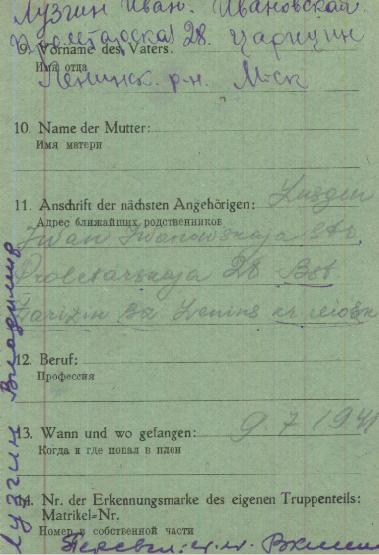 Лузгин Иван. Ивановская
Пролетарская 28. Царицин
9. Vorname des Vaters:
Имя отца
Ленинск. р-н. Моск
10. Name der Mutter:
Имя матери
11. Anschrift der nächsten Angehörigen: Lusgin
Адрес ближайших родственников
Iwan Iwanowskaja Obl.
Proletarskaja 28
Zarizin Lenins
12. Beruf:
Профессия
13. Wann und wo gefangen: 9.7.1941
Когда и где попал в плен
14. Nr. der Erkennungsmarke des eigenen Truppenteils:
Matrikel=Nr.
Номер в собственной части
Лузгин Владимир